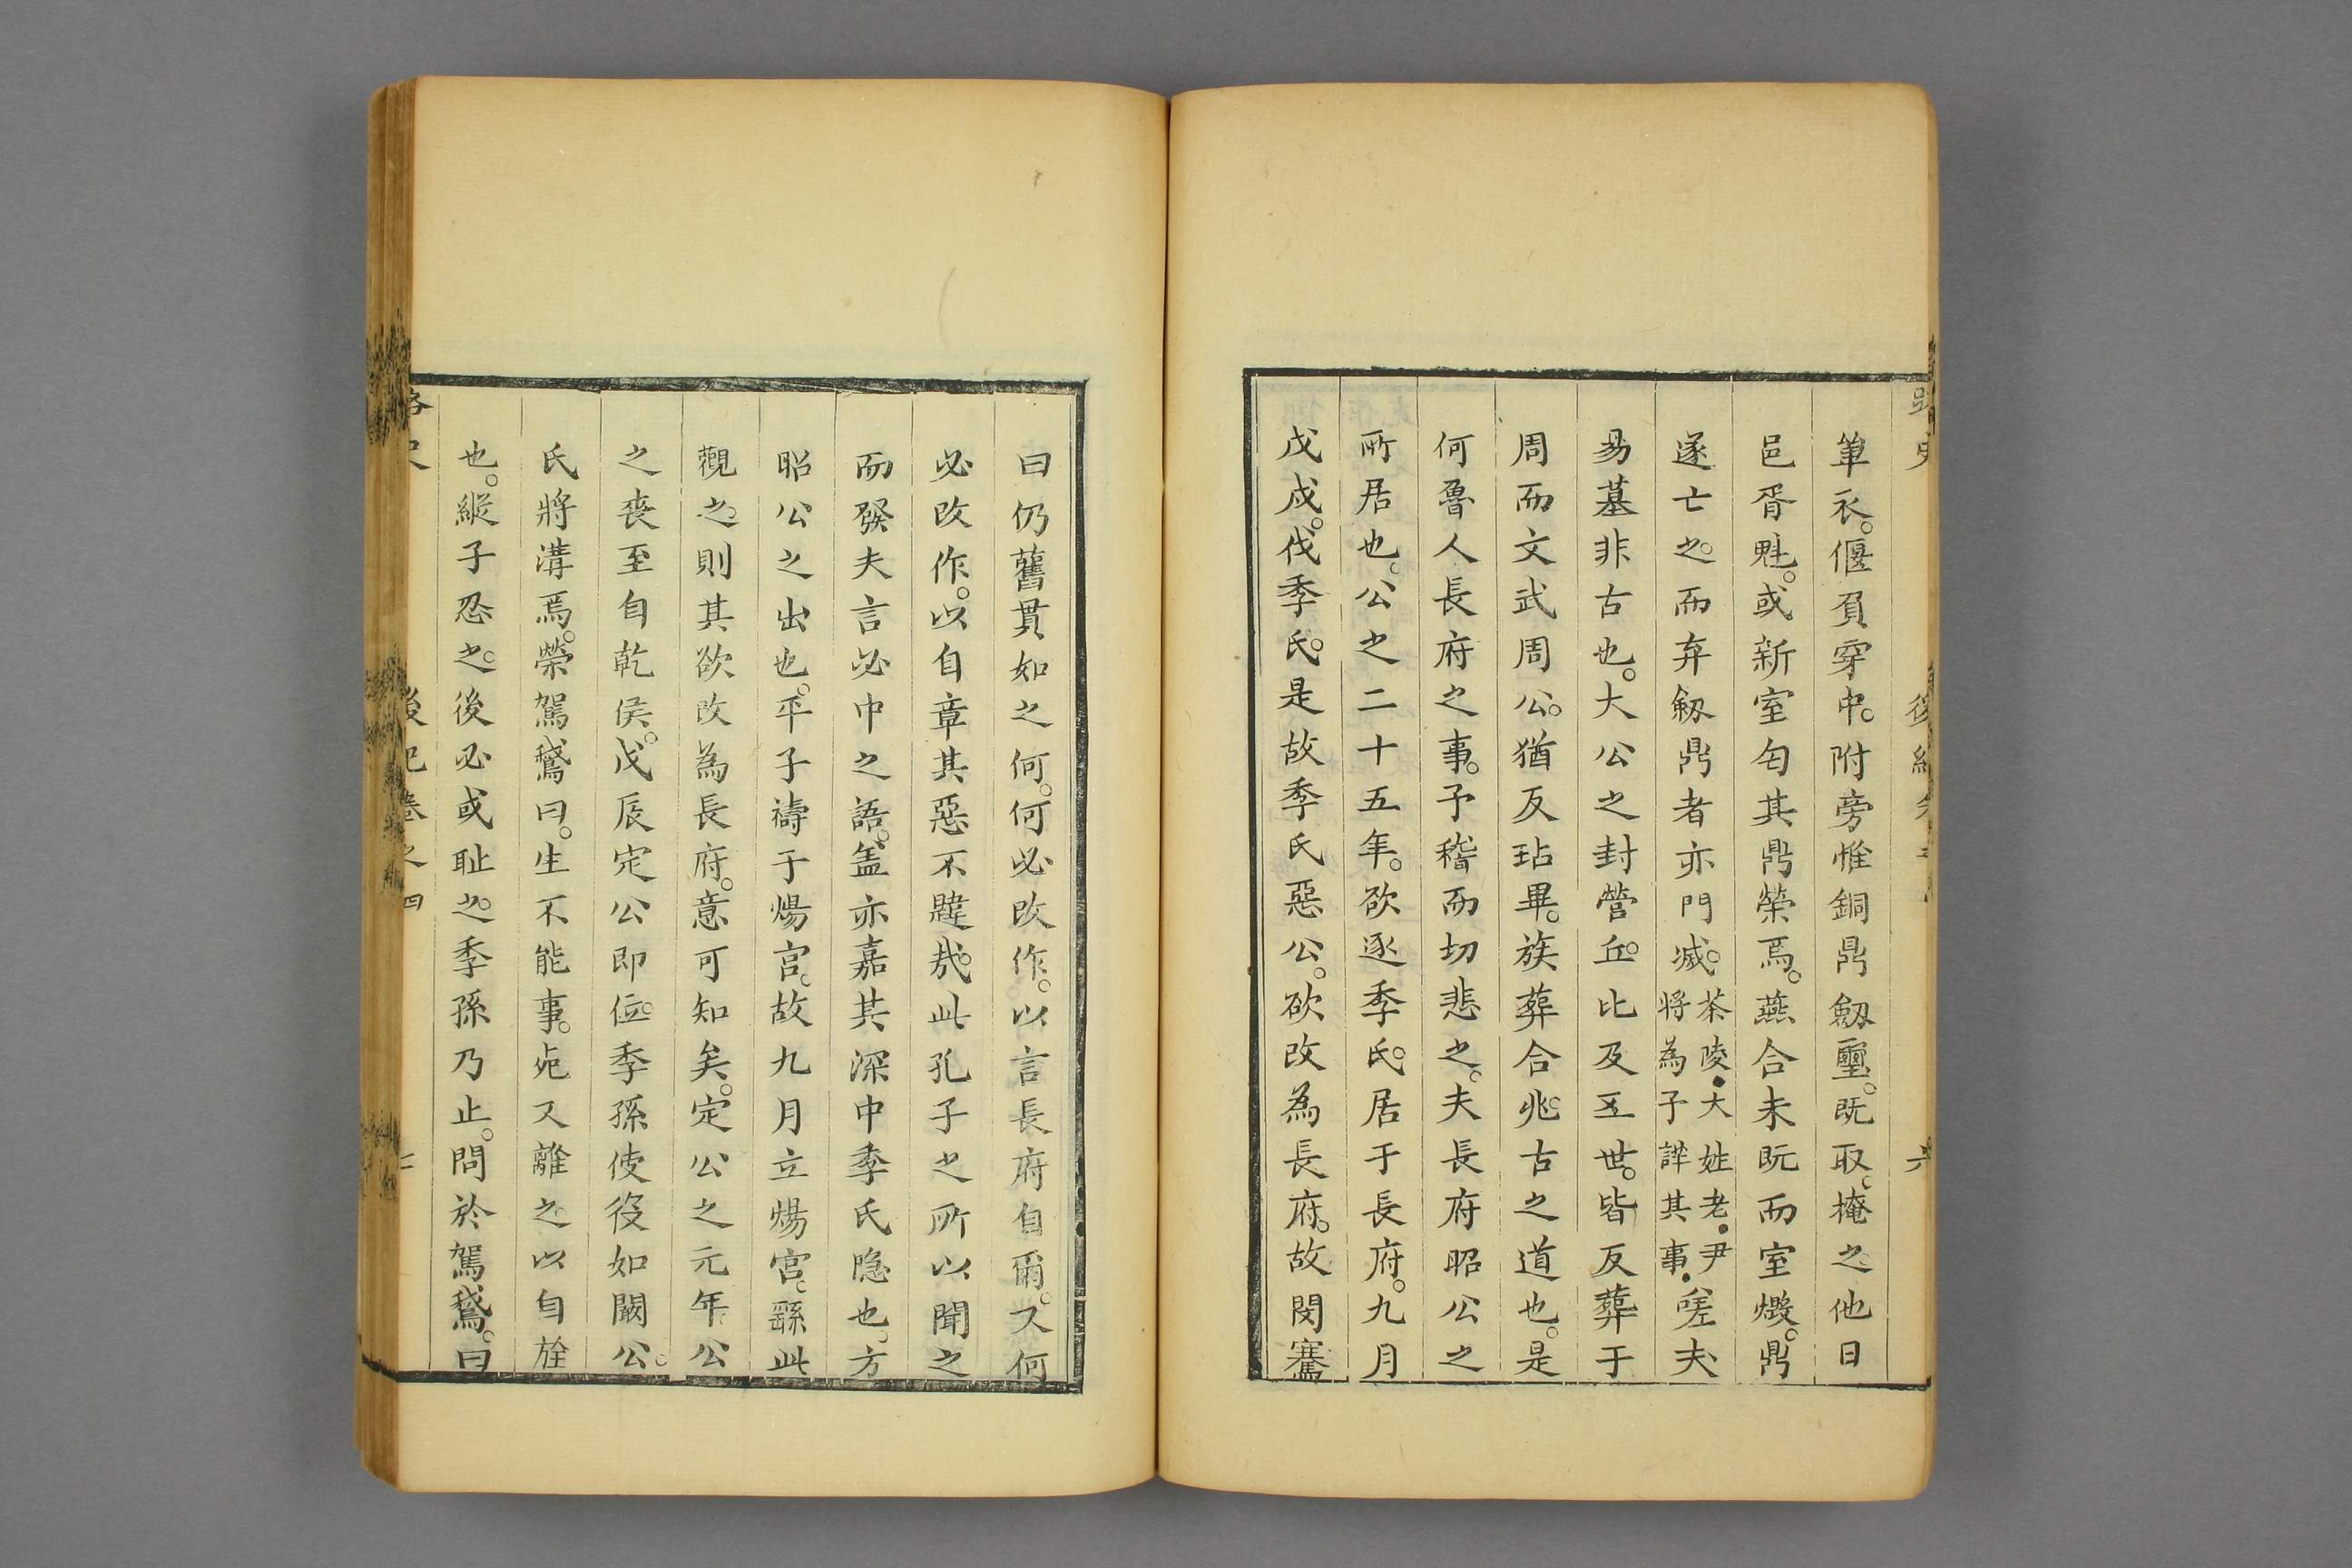 路史
後紀卷之四
六
單衣。偃負穿中。附旁惟銅鼎劔璽。既取。掩之他日
邑胥魁。或新室匄其鼎榮焉。燕合未既而室燬。鼎
遂亡之。而弃劔鼎者亦門滅。茶陵大姓老尹將為子諱其事嗟夫
易墓非古也。大公之封營丘。比及五世。皆反葬于
周而文武周公。猶反玷畢。族葬合兆。古之道也。是
何魯人長府之事。予稽而切悲之。夫長府昭公之
所居也。公之二十五年。欲逐季氏。居于長府。九月
戊戌。伐季氏。是故季氏惡公。欲改為長府。故閔騫
曰仍舊貫如之何。何必改作。以言長府自爾。又何
必改作。以自章其惡不韙哉。此孔子之所以聞之
而發夫言必中之語。盖亦嘉其深中季氏隐也。方
昭公之出也。平子禱于煬宫。故九月立煬宫。繇此
觀之。則其欲改為長府。意可知矣。定公之元年公
之喪至自乾侯。戊辰定公即位。季孫使役如闞公。
氏將溝焉。榮駕鵞曰。生不能事。死又離之以自旌
也。縱子忍之。後必或耻之。季孫乃止。問於駕鵞。曰
路史
後紀卷之四
七